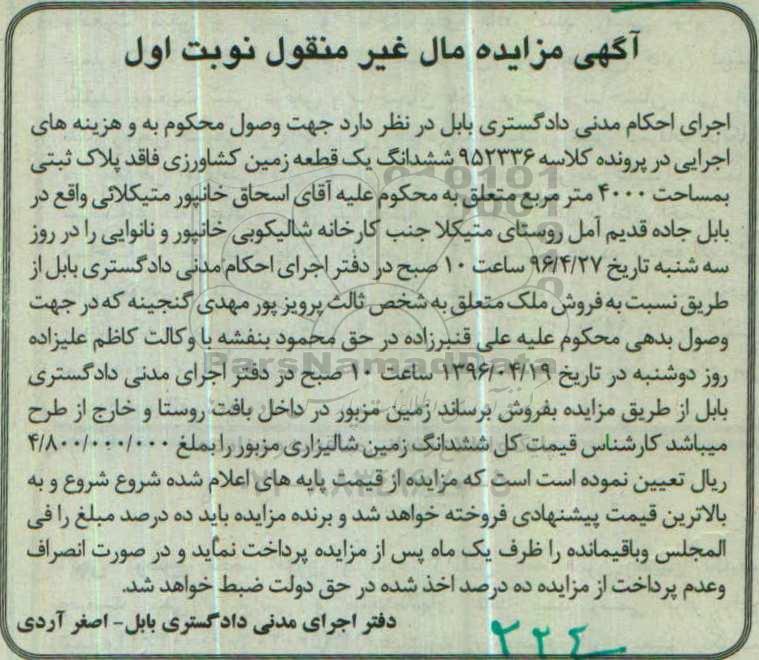 آگهی مزایده مال غیر منقول نوبت اول
اجرای احکام مدنی دادگستری بابل در نظر دارد جهت وصول محکوم به و هزینه های
اجرایی در پرونده کلاسه ۹۵۲۳۳۶ ششدانگ یک قطعه زمین کشاورزی فاقد پلاک ثبتی
بمساحت ۴۰۰۰ متر مربع متعلق به محکوم علیه آقای اسحاق خانپور متیکلائی واقع در
بابل جاده قدیم آمل روستای متیکلا جنب کارخانه شالیکوبی خانپور و نانوایی را در روز
سه شنبه تاریخ ۹۶/۴/۲۷ ساعت ۱۰ صبح در دفتر اجرای احکام مدنی دادگستری بابل از
طریق نسبت به فروش ملک متعلق به شخص ثالث پرویز پور مهدی گنجینه که در جهت
وصول بدهی محکوم علیه علی قنبرزاده در حق محمود بنفشه با وکالت کاظم علیزاده
روز دوشنبه در تاریخ ۱۳۹۶/۰۴/۱۹ ساعت ۱۰ صبح در دفتر اجرای مدنی دادگستری
بابل از طریق مزایده بفروش برساند زمین مزبور در داخل بافت روستا و خارج از طرح
میباشد کارشناس قیمت کل ششدانگ زمین شالیزاری مزبور را بملغ ۴/۸۰۰/۰۰۰/۰۰۰
ریال تعیین نموده است است که مزایده از قیمت پایه های اعلام شده شروع شروع و به
بالاترین قیمت پیشنهادی فروخته خواهد شد و برنده مزایده باید ده درصد مبلغ را فی
المجلس وباقیمانده را ظرف یک ماه پس از مزایده پرداخت نماید و در صورت انصراف
وعدم پرداخت از مزایده ده درصد اخذ شده در حق دولت ضبط خواهد شد.
دفتر اجرای مدنی دادگستری بابل- اصغر آردی
ParsNamadData
۲۲۴